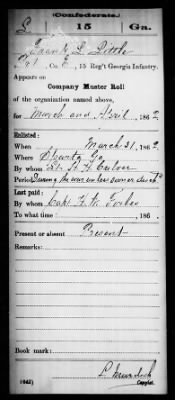 Confederate.
L 15 Ga.
Frank L. Little
Co. E, 15 Reg't Georgia Infantry.
Appears on
Company Muster Roll
of the organization named above,
for March and April, 1862.
Enlisted:
When March 31, 1862.
Where Sparta Ga
By whom Lt. R. H. Culver
Period During the war unless sooner disch'd
Last paid:
By whom Capt. H. W. Forbes
To what time , 186 .
Present or absent Present
Remarks:
Book mark:
(642) L. Murdock
Copyist.